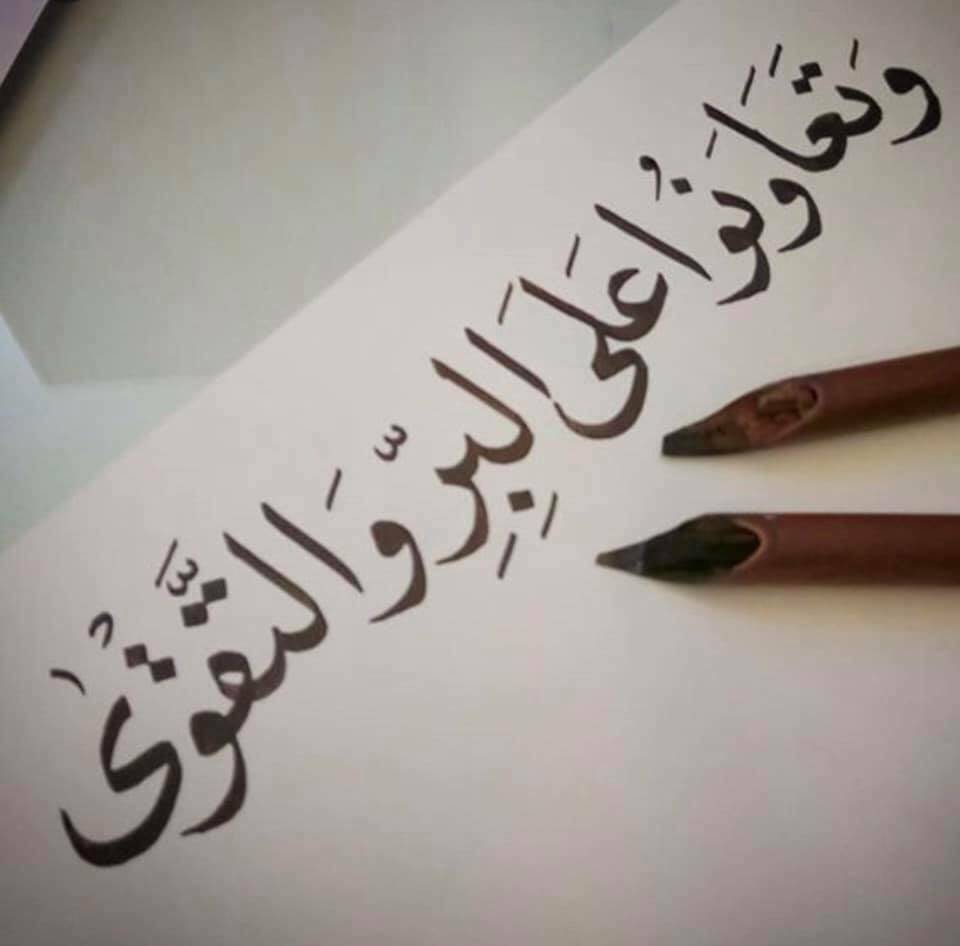 وَتَعَاوَنُوا عَلَى الْبِرِّ وَالتَّقْوٰى